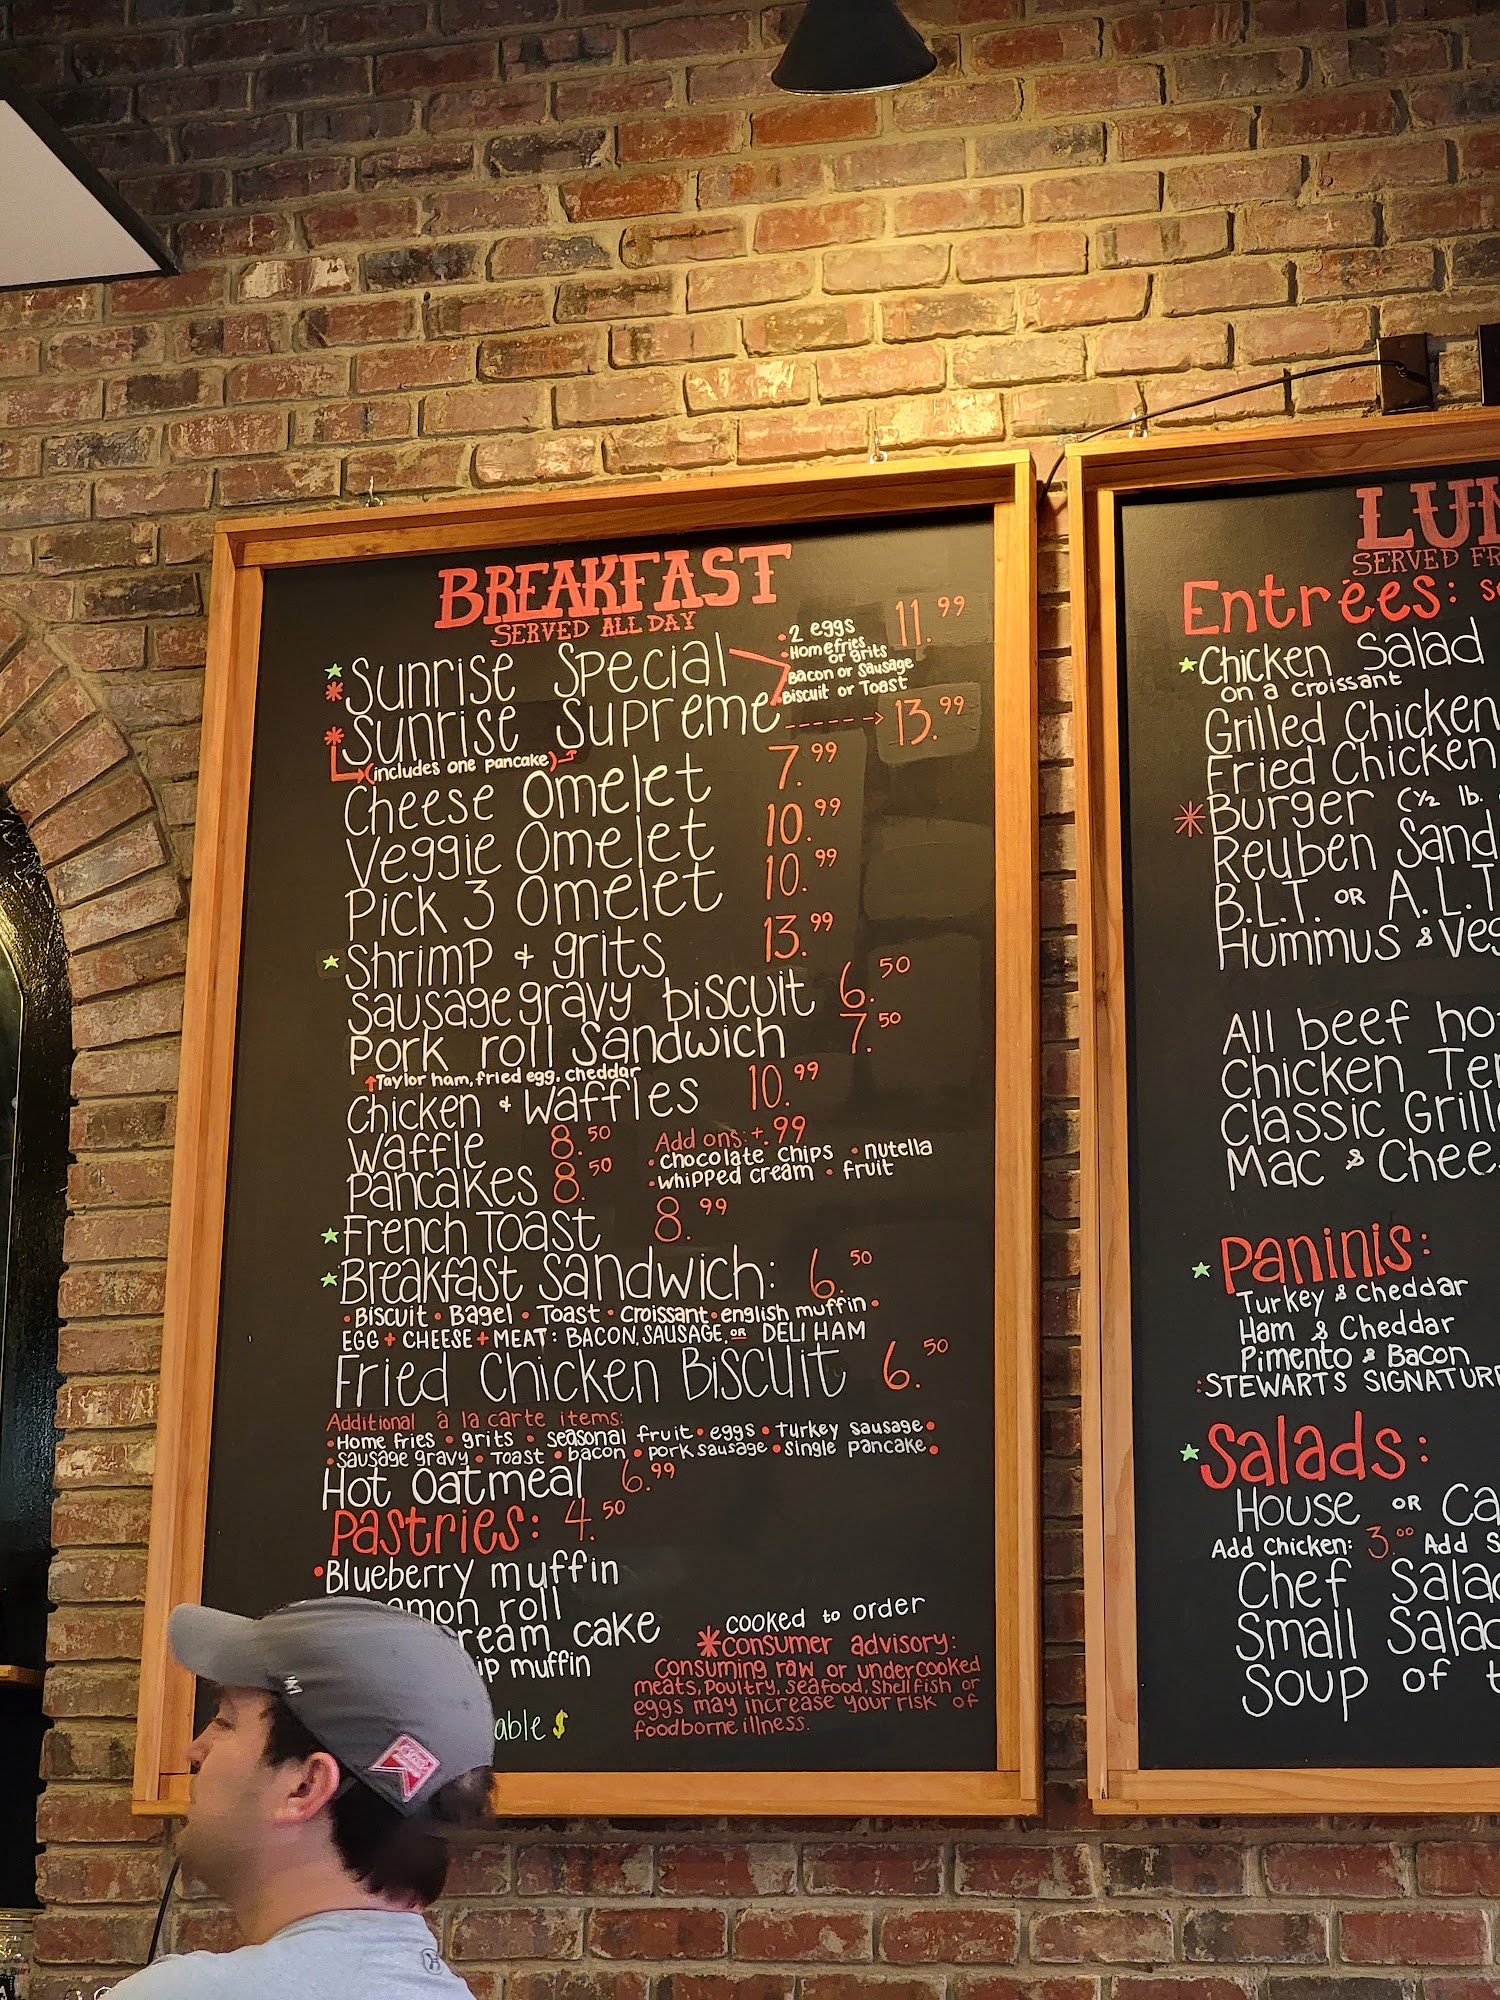 BREAKFAST
SERVED ALL DAY
Sunrise Special 11.99
• 2 eggs
• Homefries or grits
Bacon or Sausage
Biscuit or Toast
Sunrise Supreme 13.99
(includes one pancake)
Cheese Omelet 7.99
Veggie Omelet 10.99
Pick 3 Omelet 10.99
Shrimp + grits 13.99
Sausage gravy biscuit 6.50
Pork roll Sandwich 7.50
Taylor ham, fried egg, cheddar
Chicken + Waffles 10.99
Waffle 8.50
Pancakes 8.50
Add ons: +.99
• chocolate chips • nutella
• whipped cream • fruit
French Toast 8.99
Breakfast Sandwich: 6.50
• Biscuit • Bagel • Toast • Croissant • english muffin •
EGG + CHEESE + MEAT: BACON, SAUSAGE, OR DELI HAM
Fried Chicken Biscuit 6.50
Additional à la carte items:
• Home fries • grits • seasonal fruit • eggs • Turkey sausage •
• sausage gravy • Toast • bacon • pork sausage • single pancake •
Hot Oatmeal 6.99
Pastries: 4.50
• Blueberry muffin
amon roll
ream cake
ip muffin
able $
COOKED to order
*consumer advisory:
Consuming raw or undercooked
meats, poultry, seafood, shellfish or
eggs may increase your risk of
foodborne illness.
LUN
SERVED FR
Entrées: se
Chicken Salad
on a croissant
Grilled Chicken
Fried Chicken
*Burger (1/2 lb.
Reuben Sand
B.L.T. OR A.L.T
Hummus & Veg
All beef ho
Chicken Te
Classic Grill
Mac & Chee
Paninis:
Turkey & Cheddar
Ham & Cheddar
Pimento & Bacon
:STEWARTS SIGNATUR
Salads:
House OR Ca
Add Chicken: 3.00 Add S
Chef Salad
Small Salad
Soup of t